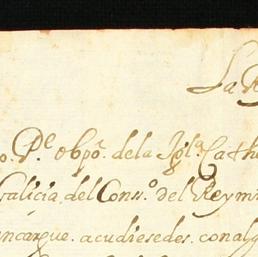 La R
o. P.e obpo. dela Igla. Cathe
Galicia, del Cons.o del Rey mi
encargue. acudiesedes. con alg